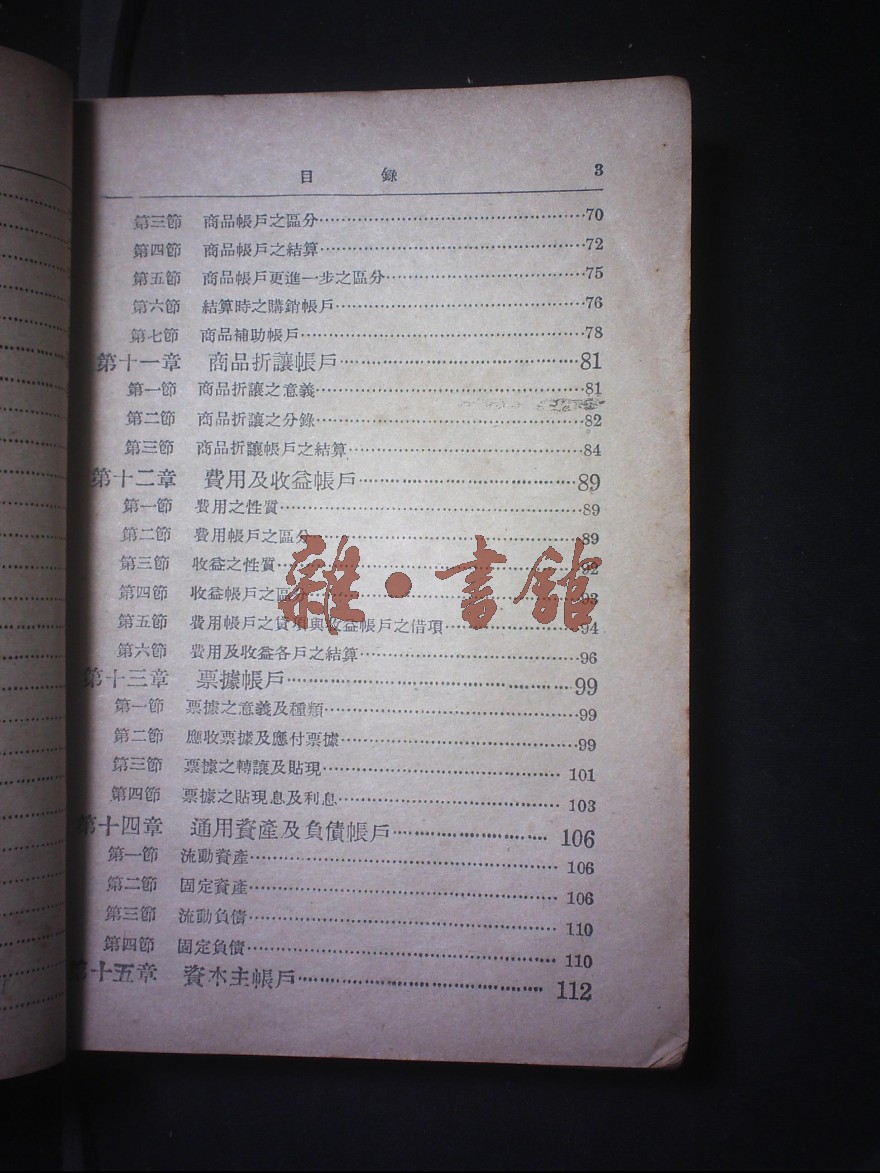 目錄 3
第三節 商品帳戶之區分……70
第四節 商品帳戶之結算……72
第五節 商品帳戶更進一步之區分……75
第六節 結算時之購銷帳戶……76
第七節 商品補助帳戶……78
第十一章 商品折讓帳戶……81
第一節 商品折讓之意義……81
第二節 商品折讓之分錄……82
第三節 商品折讓帳戶之結算……84
第十二章 費用及收益帳戶……89
第一節 費用之性質……89
第二節 費用帳戶之區分……89
第三節 收益之性質……92
第四節 收益帳戶之區分……93
第五節 費用帳戶之貸項與收益帳戶之借項……94
第六節 費用及收益各戶之結算……96
第十三章 票據帳戶……99
第一節 票據之意義及種類……99
第二節 應收票據及應付票據……99
第三節 票據之轉讓及貼現……101
第四節 票據之貼現息及利息……103
第十四章 通用資產及負債帳戶……106
第一節 流動資產……106
第二節 固定資產……106
第三節 流動負債……110
第四節 固定負債……110
第十五章 資本主帳戶……112
雜·書館